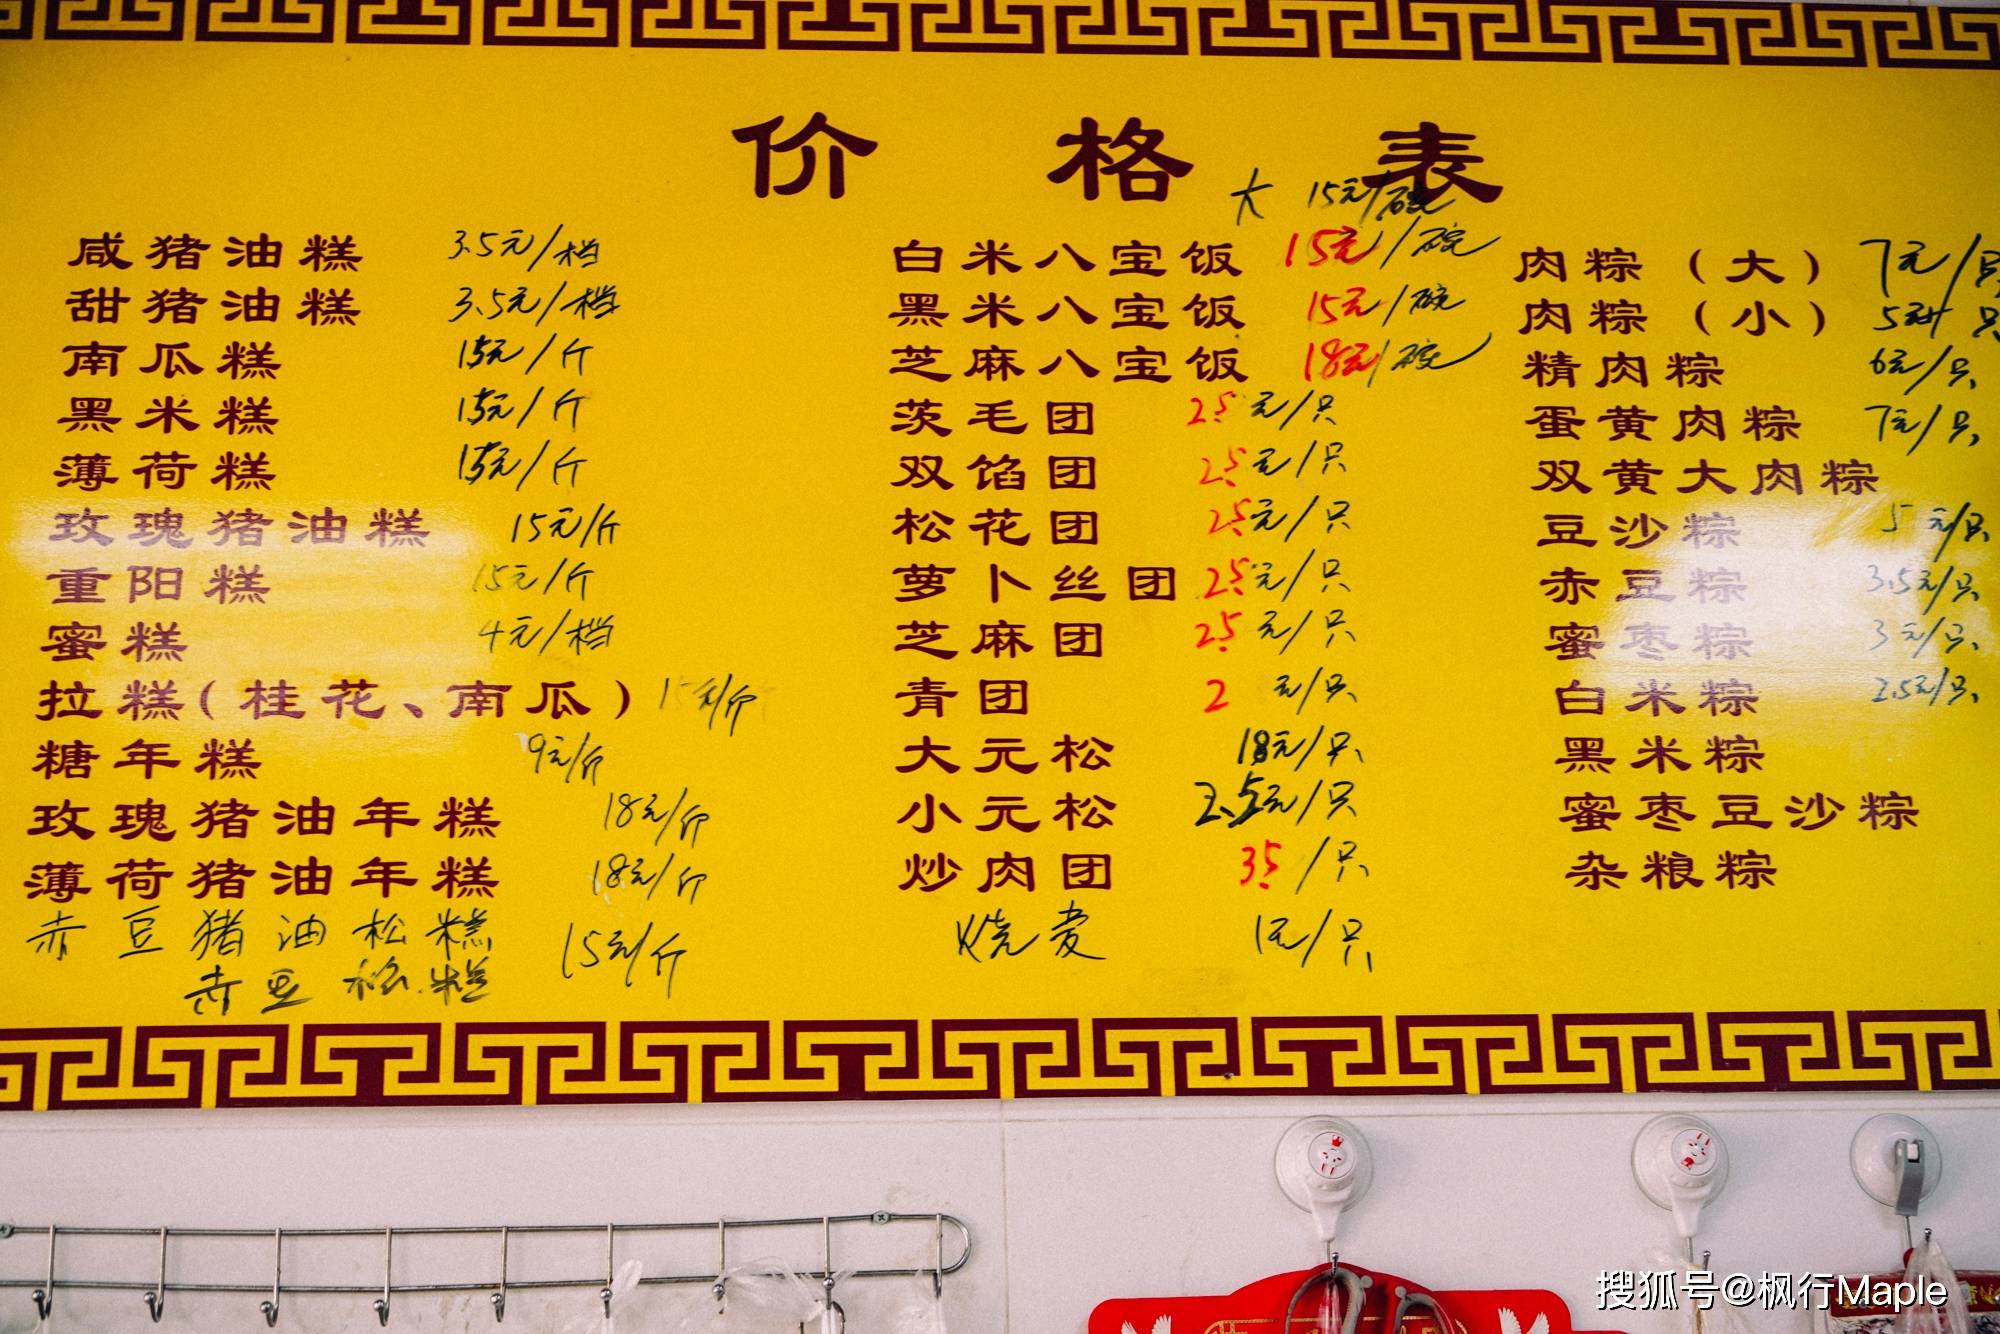 价格表
大 15元/碗
咸猪油糕 3.5元/档
甜猪油糕 3.5元/档
南瓜糕 15元/斤
黑米糕 15元/斤
薄荷糕 15元/斤
玫瑰猪油糕 15元/斤
重阳糕 15元/斤
蜜糕 4元/档
拉糕(桂花、南瓜) 15元/斤
糖年糕 9元/斤
玫瑰猪油年糕 18元/斤
薄荷猪油年糕 18元/斤
赤豆猪油松糕 15元/斤
赤豆松糕
白米八宝饭 15元/碗
黑米八宝饭 15元/碗
芝麻八宝饭 18元/碗
茨毛团 2.5元/只
双馅团 2.5元/只
松花团 2.5元/只
萝卜丝团 2.5元/只
芝麻团 2.5元/只
青团 2元/只
大元松 18元/只
小元松 2.5元/只
炒肉团 3.5/只
烧麦 1元/只
肉粽(大) 7元/只
肉粽(小) 5元/只
精肉粽 6元/只
蛋黄肉粽 7元/只
双黄大肉粽
豆沙粽 5元/只
赤豆粽 3.5元/只
蜜枣粽 3元/只
白米粽 2.5元/只
黑米粽
蜜枣豆沙粽
杂粮粽
搜狐号@枫行Maple